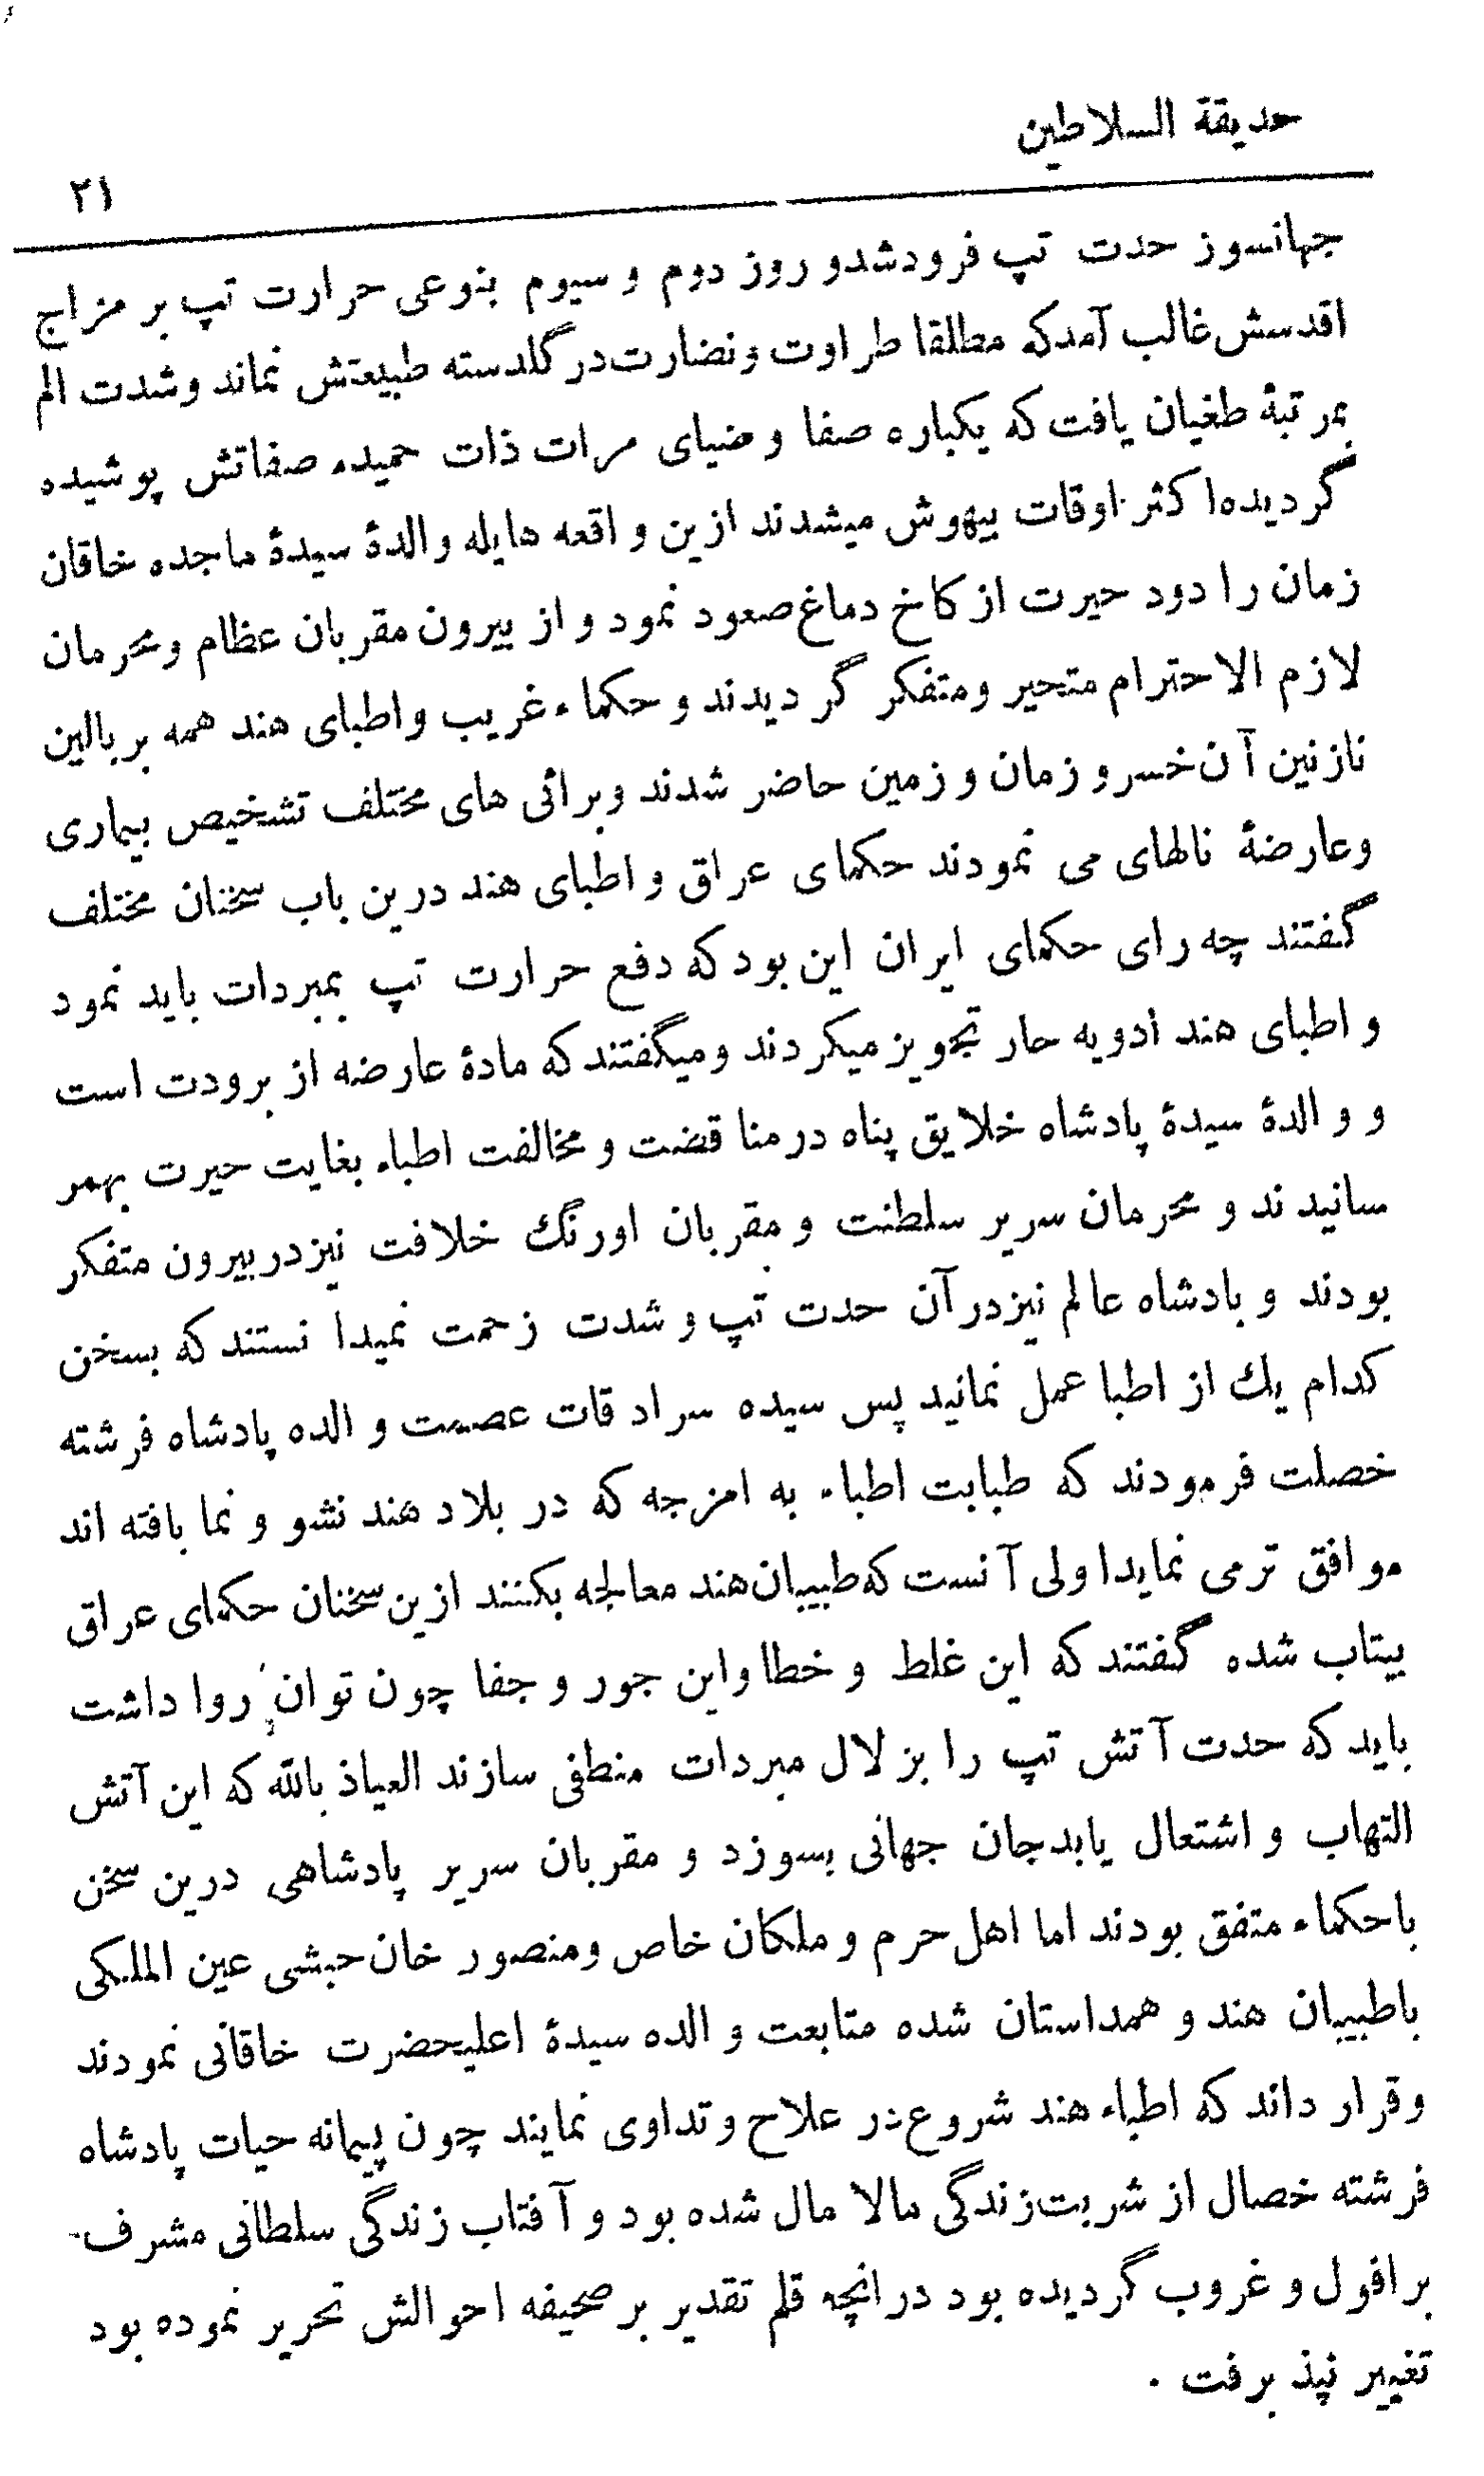 حديقة السلاطين
۲۱
جهانسوز حدت تپ فرودشدو روز دوم و سیوم بنوعی حرارت تپ بر مزاج
اقدسش غالب آمدکه مطلقا طراوت و نضارت در گلدسته طبیعتش نماند وشدت الم
بمرتبۀ طغیان یافت که یکباره صفا و ضیای مرات ذات حمیده صفاتش پوشیده
گردیده اکثر اوقات بیهوش میشدند ازین واقعه هایله والدۀ سیدۀ ماجده خاقان
زمان را دود حیرت از کاخ دماغ صعود نمود و از بیرون مقربان عظام ومحرمان
لازم الاحترام متحیر ومتفکر گردیدند و حکماء غریب واطبای هند همه بر بالین
نازنین آن خسرو زمان و زمین حاضر شدند وبرائی های مختلف تشخیص بیماری
وعارضۀ نالهای می نمودند حکمای عراق و اطبای هند درین باب سخنان مختلف
گفتند چه رای حکمای ایران این بود که دفع حرارت تپ بمبردات باید نمود
و اطبای هند ادویه حار تجویز میکردند ومیگفتند که مادۀ عارضه از برودت است
و والدۀ سیدۀ پادشاه خلایق پناه در مناقضت و مخالفت اطباء بغایت حیرت بهمر
سانیدند و محرمان سریر سلطنت و مقربان اورنگ خلافت نیز در بیرون متفکر
بودند و بادشاه عالم نیز در آن حدت تپ و شدت زحمت نمیدا نستند که بسخن
کدام یك از اطبا عمل نمانید پس سیده سرادقات عصمت و الده پادشاه فرشته
خصلت فرمودند که طبابت اطباء به امزجه که در بلاد هند نشو و نما بافته اند
موافق ترمی نمایدا ولی آنست که طبیبان هند معالجه بکنند ازین سخنان حکمای عراق
بیتاب شده گفتند که این غلط و خطا واین جور و جفا چون توان روا داشت
باید که حدت آتش تپ را بزلال مبردات منطفی سازند العیاذ بالله که این آتش
التهاب و اشتعال یابد جان جهانی بسوزد و مقربان سریر پادشاهی درین سخن
باحکماء متفق بودند اما اهل حرم و ملکان خاص ومنصور خان حبشی عین الملکی
باطبیبان هند و همداستان شده متابعت و الده سیدۀ اعلیحضرت خاقانی نمودند
وقرار داند که اطباء هند شروع در علاح و تداوی نمایند چون پیمانه حیات پادشاه
فرشته خصال از شربت زندگی مالا مال شده بود و آفتاب زندگی سلطانی مشرف
بر افول و غروب گردیده بود در انچه قلم تقدیر بر صحیفه احوالش تحریر نموده بود
تغییر نپذ برفت .